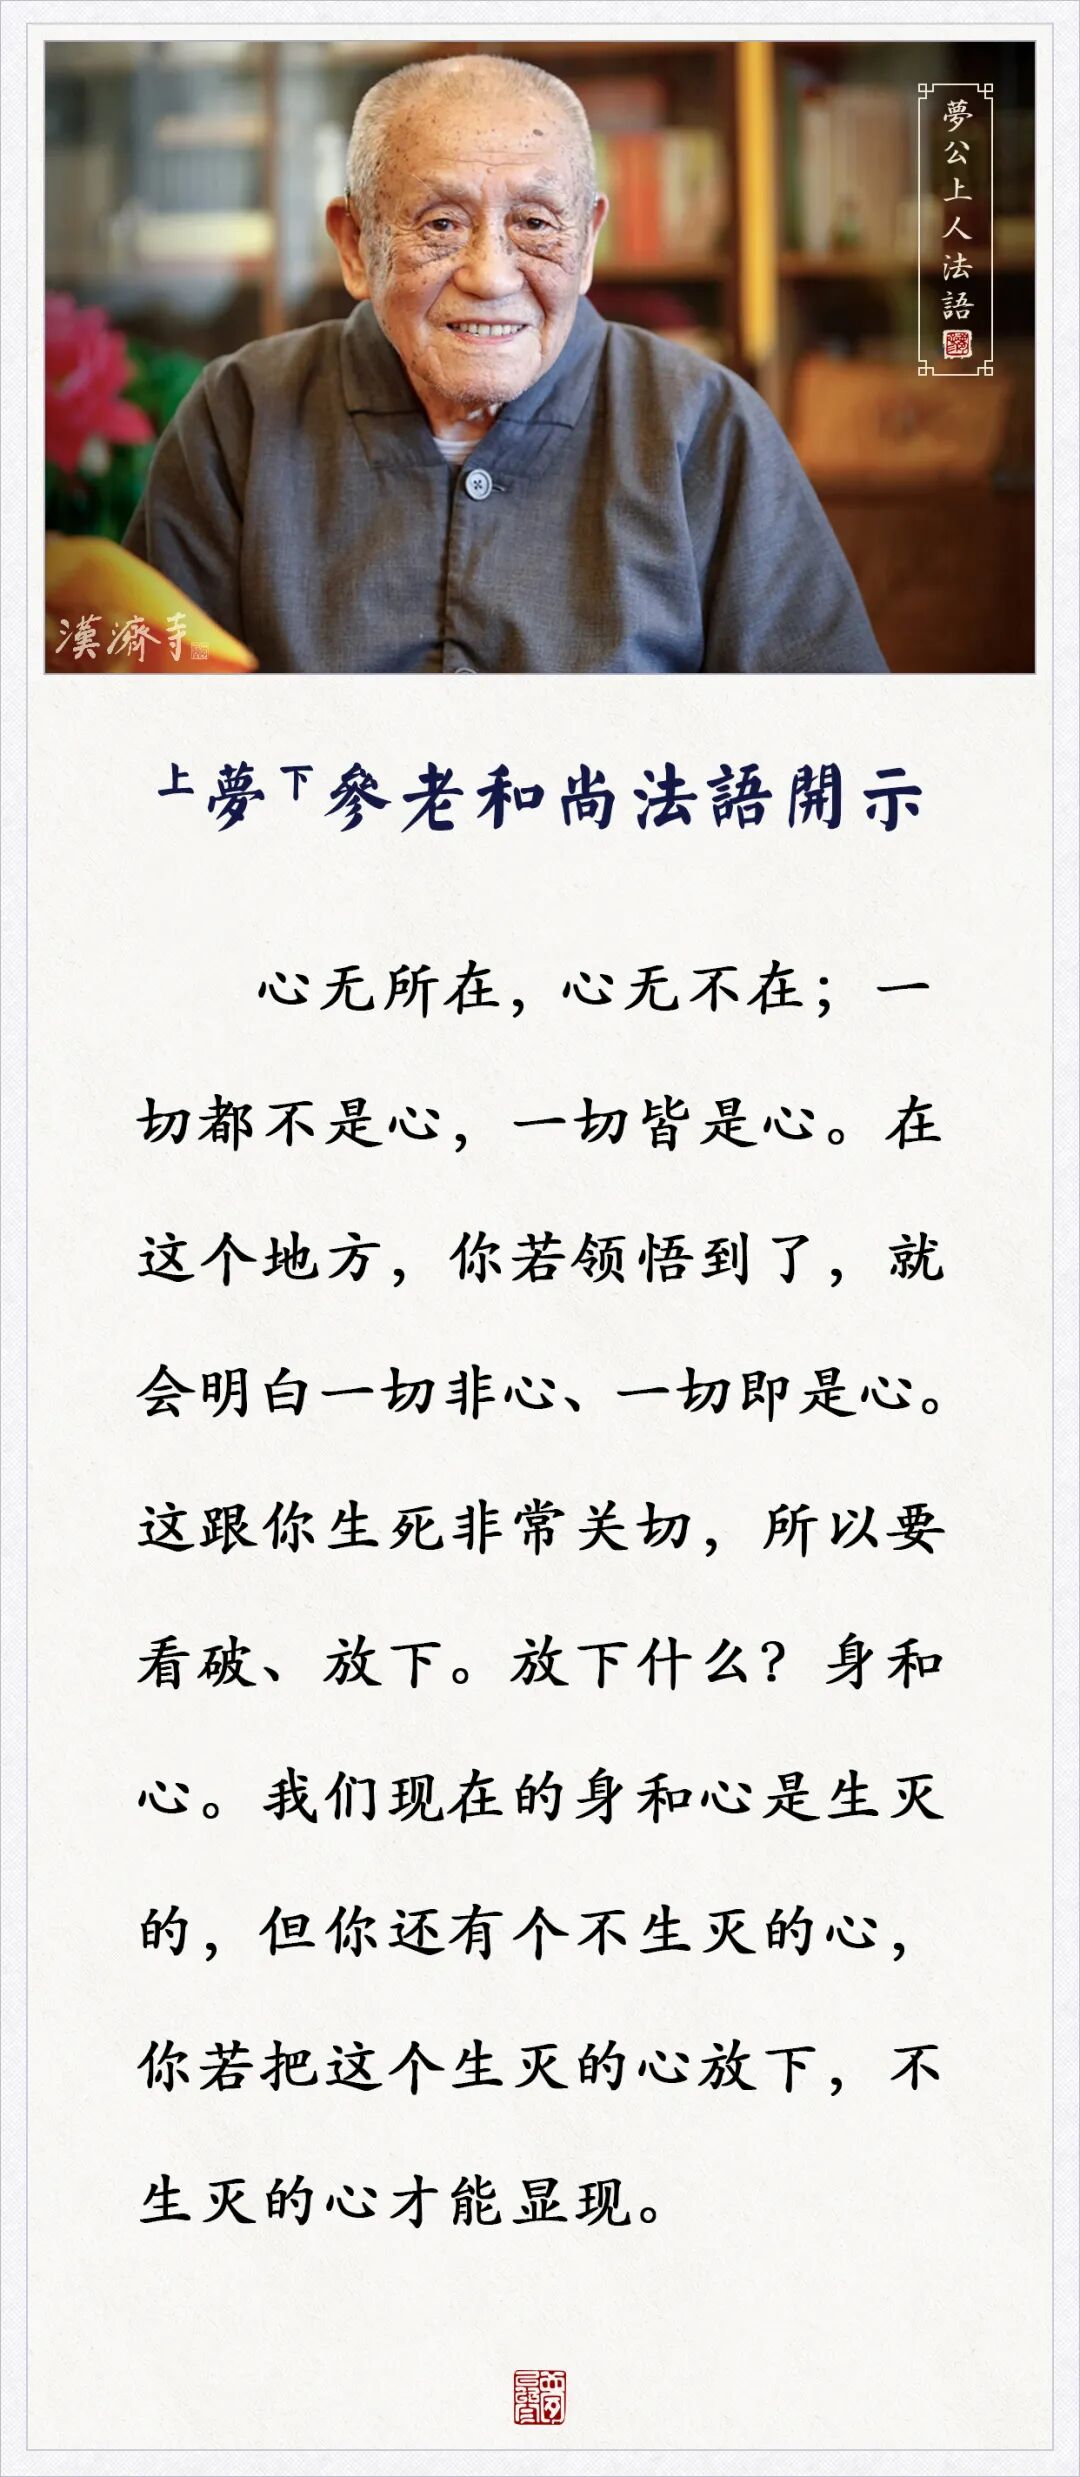 夢公上人法語
漢濟寺
上夢下參老和尚法語開示
心无所在，心无不在；一
切都不是心，一切皆是心。在
这个地方，你若领悟到了，就
会明白一切非心、一切即是心。
这跟你生死非常关切，所以要
看破、放下。放下什么？身和
心。我们现在的身和心是生灭
的，但你还有个不生灭的心，
你若把这个生灭的心放下，不
生灭的心才能显现。